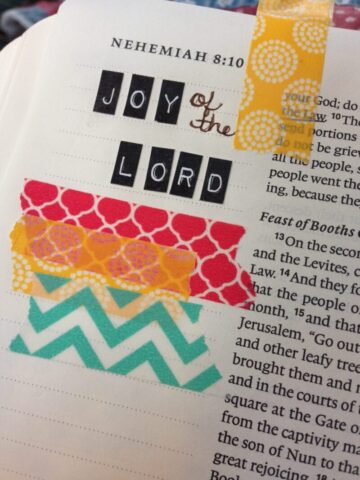 NEHEMIAH 8:10
JOY of
the
LORD
your God; do
the Law. 10 The
send portions
do not be grie
all the people, s
people went th
ing, because the
Feast of Booths
13 On the secon
and the Levites,
Law. 14 And they fo
that the people of
month, 15 and that
Jerusalem, “Go out
and other leafy tree
brought them and
and in the courts of
square at the Gate o
from the captivity ma
the son of Nun to tha
great rejoicing. 18